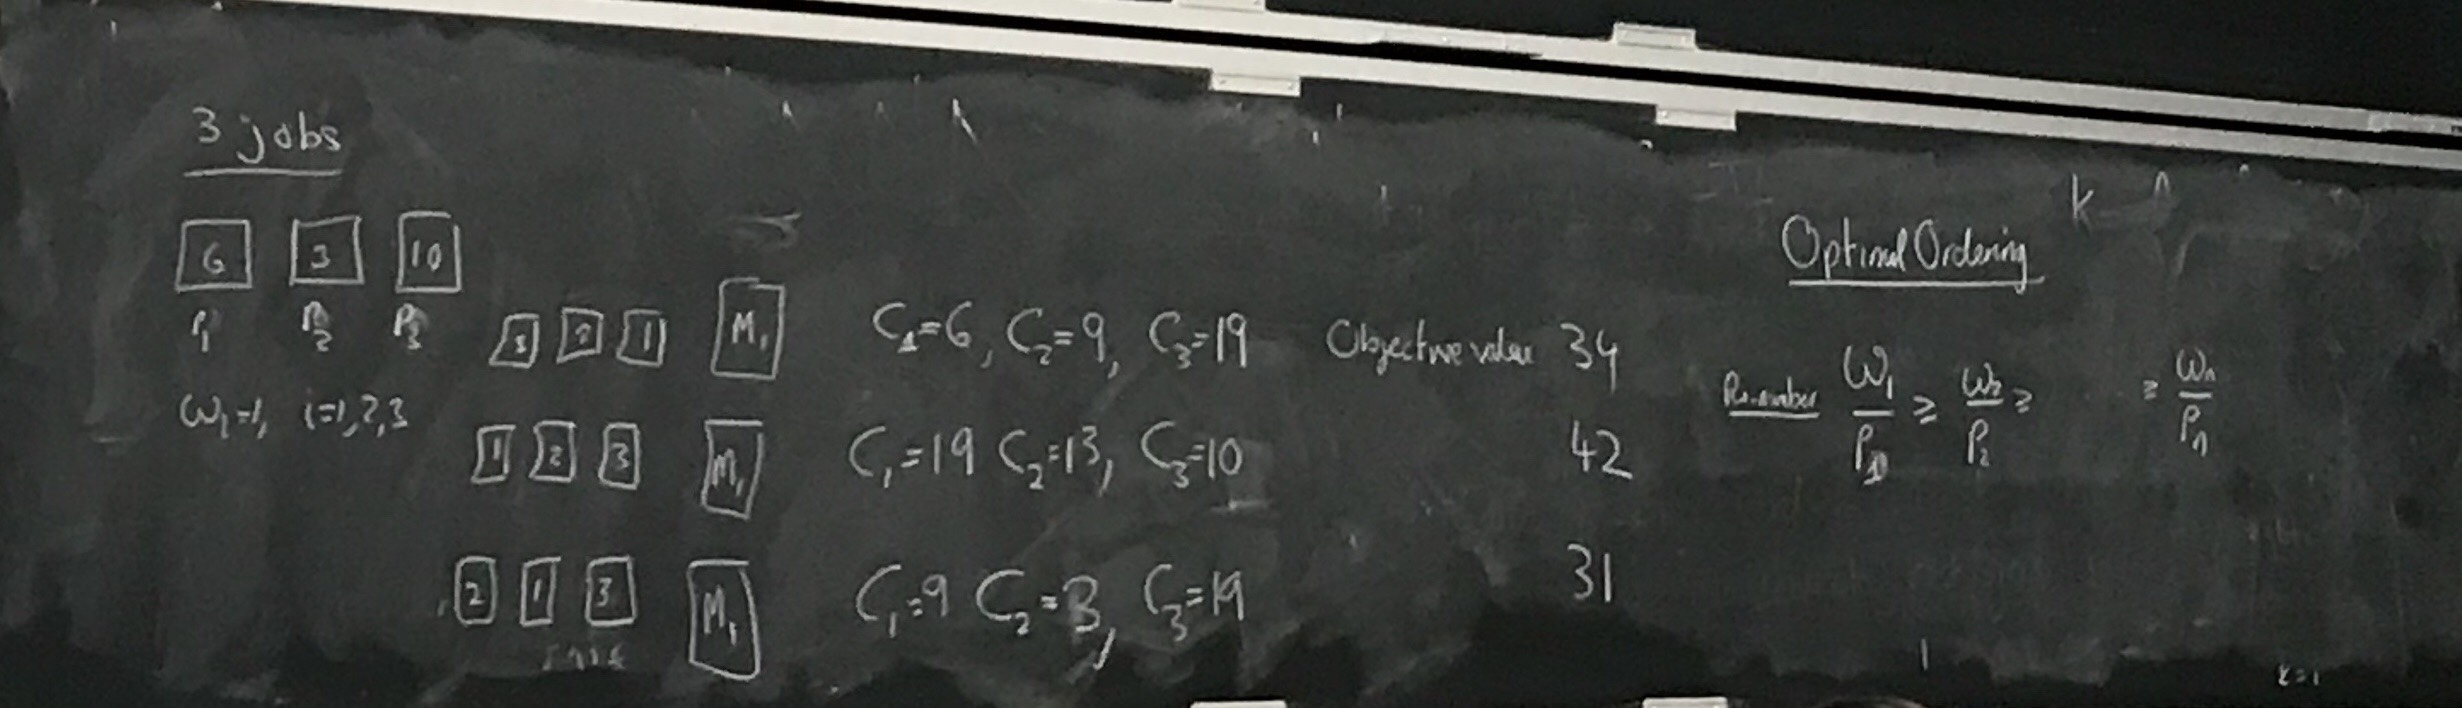 3 jobs
6 3 10
P₁ P₂ P₃
ω₁=1, i=1,2,3
3 2 1 M₁ C₁=6, C₂=9, C₃=19 Objective value 34
1 2 3 M₁ C₁=19 C₂=13, C₃=10 42
2 1 3 M₁ C₁=9 C₂=3, C₃=19 31
k
Optimal Ordering
Re-number ω₁/P₁ ≥ ω₂/P₂ ≥ ≥ ωₙ/Pₙ